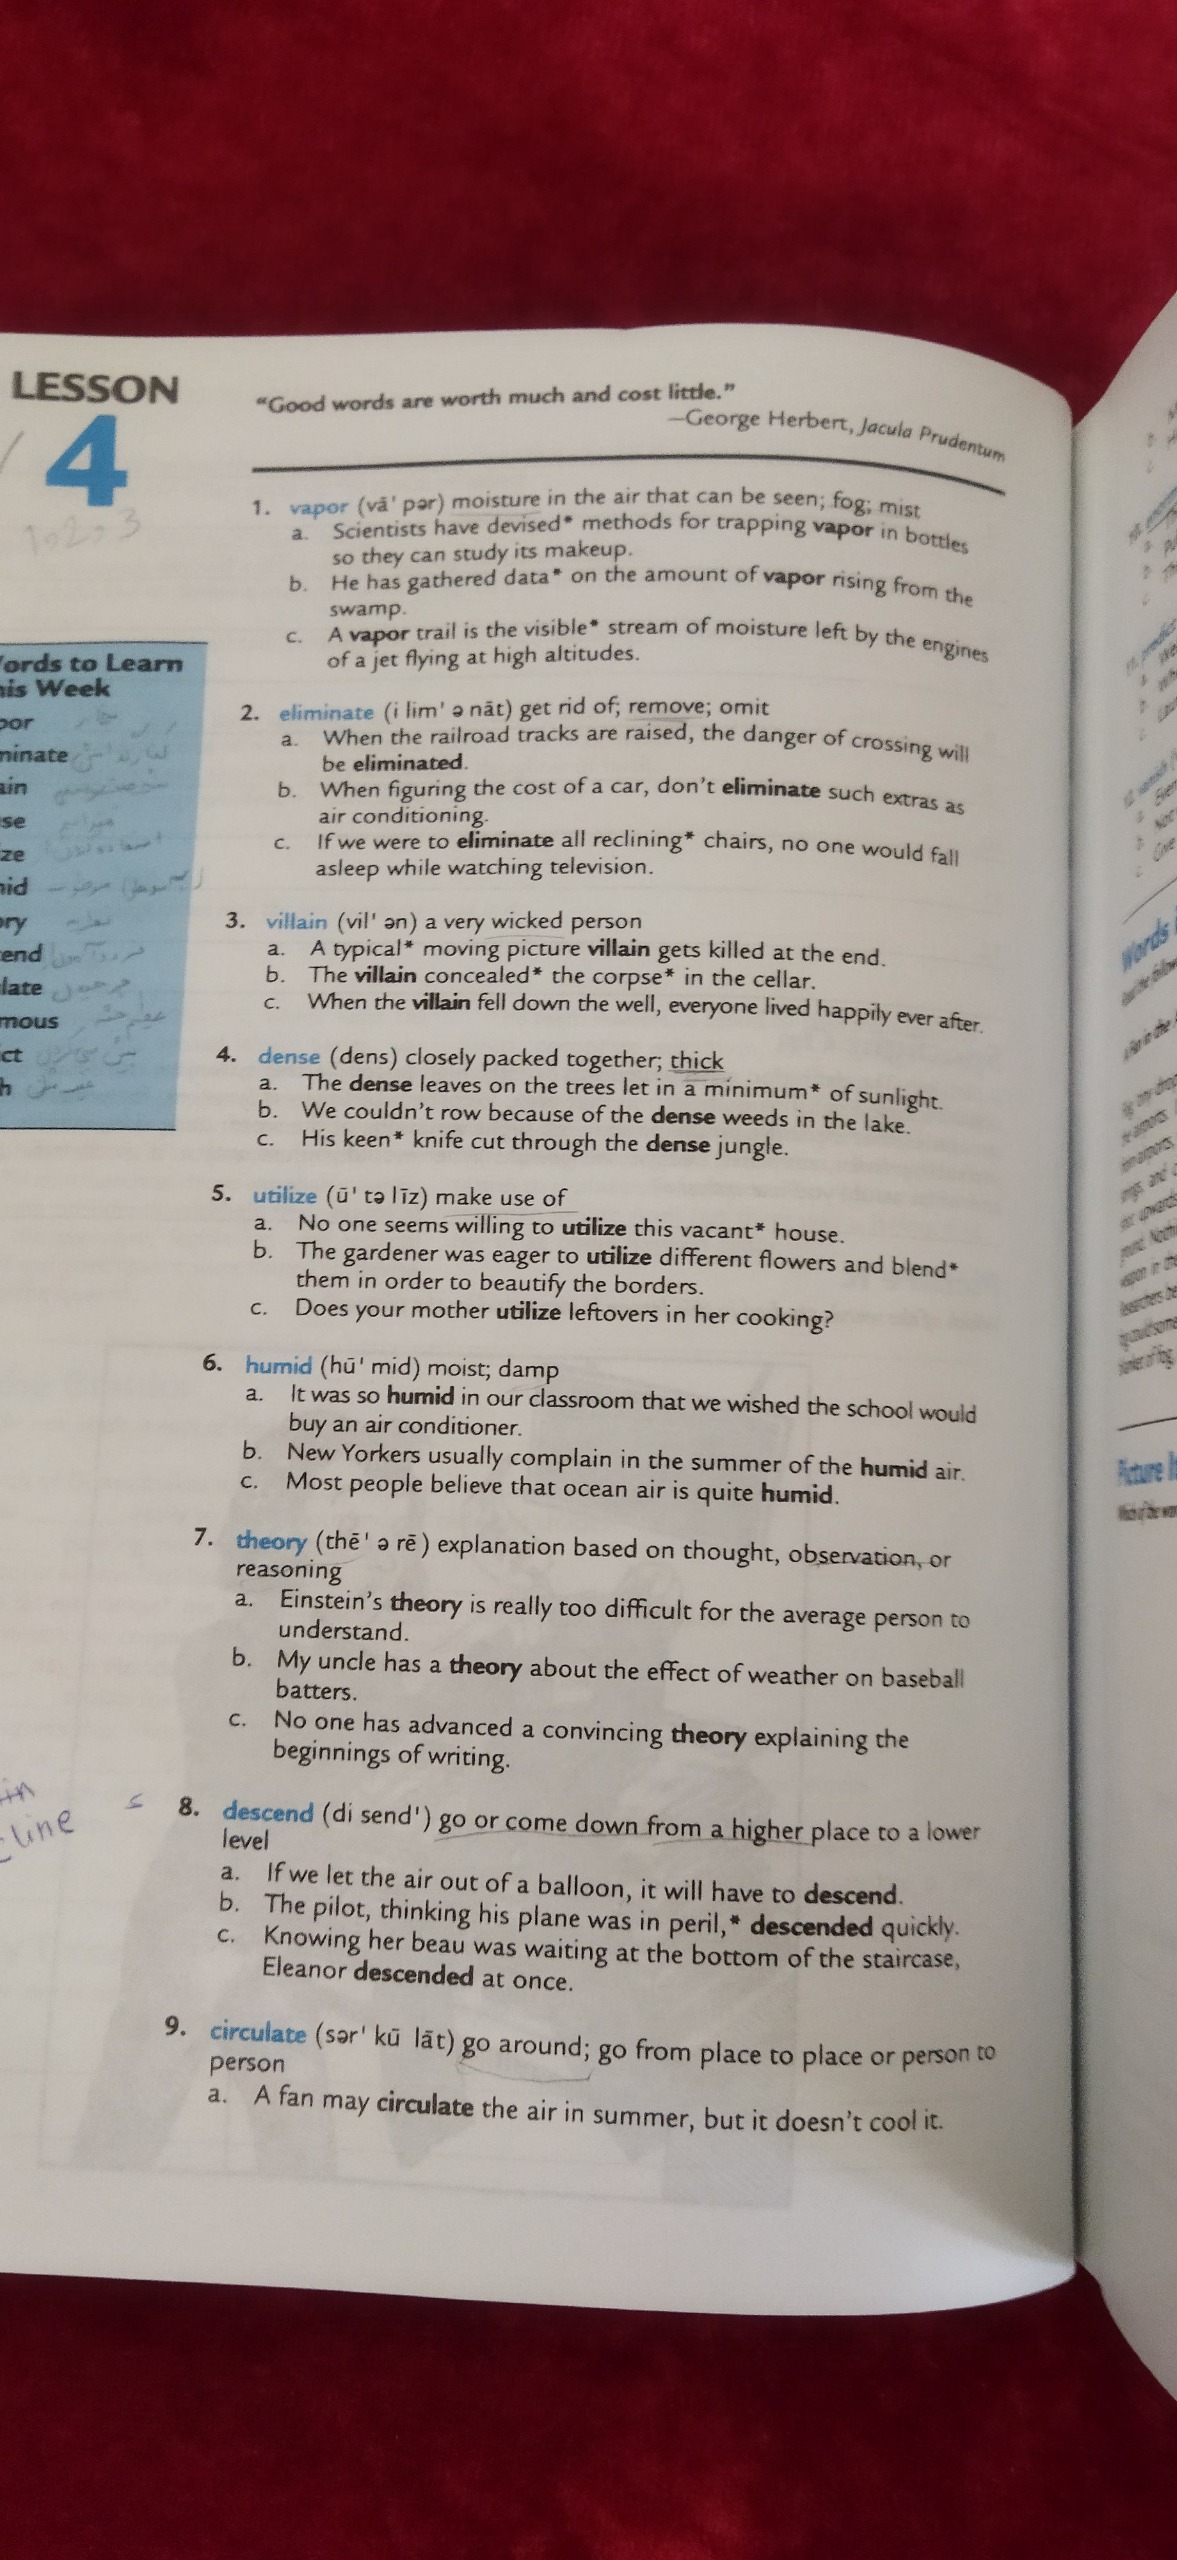 LESSON
4
1-2-3
"Good words are worth much and cost little."
—George Herbert, Jacula Prudentum
ords to Learn
is Week
por
minate
ain
se
ze
id
ory
end
late
mous
ct
h
1. vapor (vā' pər) moisture in the air that can be seen; fog; mist
a. Scientists have devised* methods for trapping vapor in bottles
so they can study its makeup.
b. He has gathered data* on the amount of vapor rising from the
swamp.
c. A vapor trail is the visible* stream of moisture left by the engines
of a jet flying at high altitudes.
2. eliminate (i lim' ə nāt) get rid of; remove; omit
a. When the railroad tracks are raised, the danger of crossing will
be eliminated.
b. When figuring the cost of a car, don't eliminate such extras as
air conditioning.
c. If we were to eliminate all reclining* chairs, no one would fall
asleep while watching television.
3. villain (vil' ən) a very wicked person
a. A typical* moving picture villain gets killed at the end.
b. The villain concealed* the corpse* in the cellar.
c. When the villain fell down the well, everyone lived happily ever after.
4. dense (dens) closely packed together; thick
a. The dense leaves on the trees let in a minimum* of sunlight.
b. We couldn't row because of the dense weeds in the lake.
c. His keen* knife cut through the dense jungle.
5. utilize (ū' tə līz) make use of
a. No one seems willing to utilize this vacant* house.
b. The gardener was eager to utilize different flowers and blend*
them in order to beautify the borders.
c. Does your mother utilize leftovers in her cooking?
6. humid (hū' mid) moist; damp
a. It was so humid in our classroom that we wished the school would
buy an air conditioner.
b. New Yorkers usually complain in the summer of the humid air.
c. Most people believe that ocean air is quite humid.
7. theory (thē' ə rē) explanation based on thought, observation, or
reasoning
a. Einstein's theory is really too difficult for the average person to
understand.
b. My uncle has a theory about the effect of weather on baseball
batters.
c. No one has advanced a convincing theory explaining the
beginnings of writing.
8. descend (di send') go or come down from a higher place to a lower
level
a. If we let the air out of a balloon, it will have to descend.
b. The pilot, thinking his plane was in peril,* descended quickly.
c. Knowing her beau was waiting at the bottom of the staircase,
Eleanor descended at once.
9. circulate (sər' kū lāt) go around; go from place to place or person to
person
a. A fan may circulate the air in summer, but it doesn't cool it.
Words
Picture